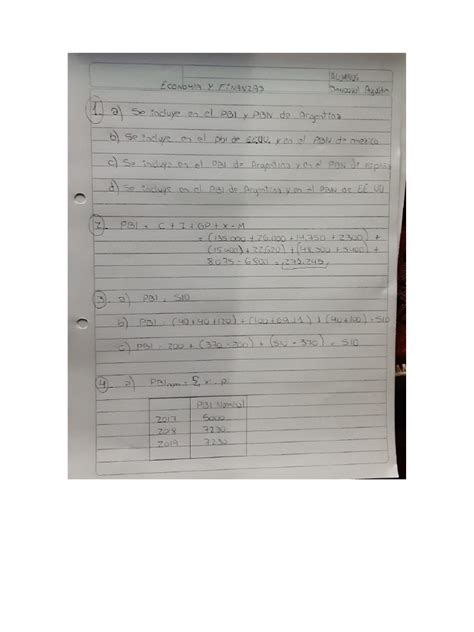 ECONOMIA Y FINANZAS
ALUMNOS
1. a) Se incluye en el PBI y PBN de Argentina
b) Se incluye en el pbi de EE.UU. y en el PBN de mexico
c) Se incluye en el PBI de Argentina y en el PBN de españa
d) Se incluye en el PBI de Argentina y en el PBN de EE.UU
2. PBI = C + I + GP + X - M
= (135.000 + 26.000 + 14.750 + 2300) +
(15.400) + 22620) + (48.300 + 3400) +
8075 - 6800 = 272.245
3. a) PBI = 510
b) PBI = (40+40+120) + (100+69+1) + (40+100) = 510
c) PBI = 200 + (370-200) + (510-370) = 510
4. a) PBI nom = Σ xi . pi
PBI Nominal
2017 5000
2018 7230
2019 7230